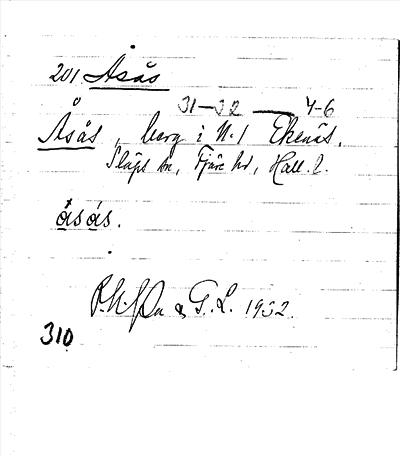 201. Åsås
31–32 — 4-6
Åsås, berg i N. 1 Ekenäs.
Släps sn, Fjäre hd, Hall. l.
åsås.
& G. L. 1932.
310